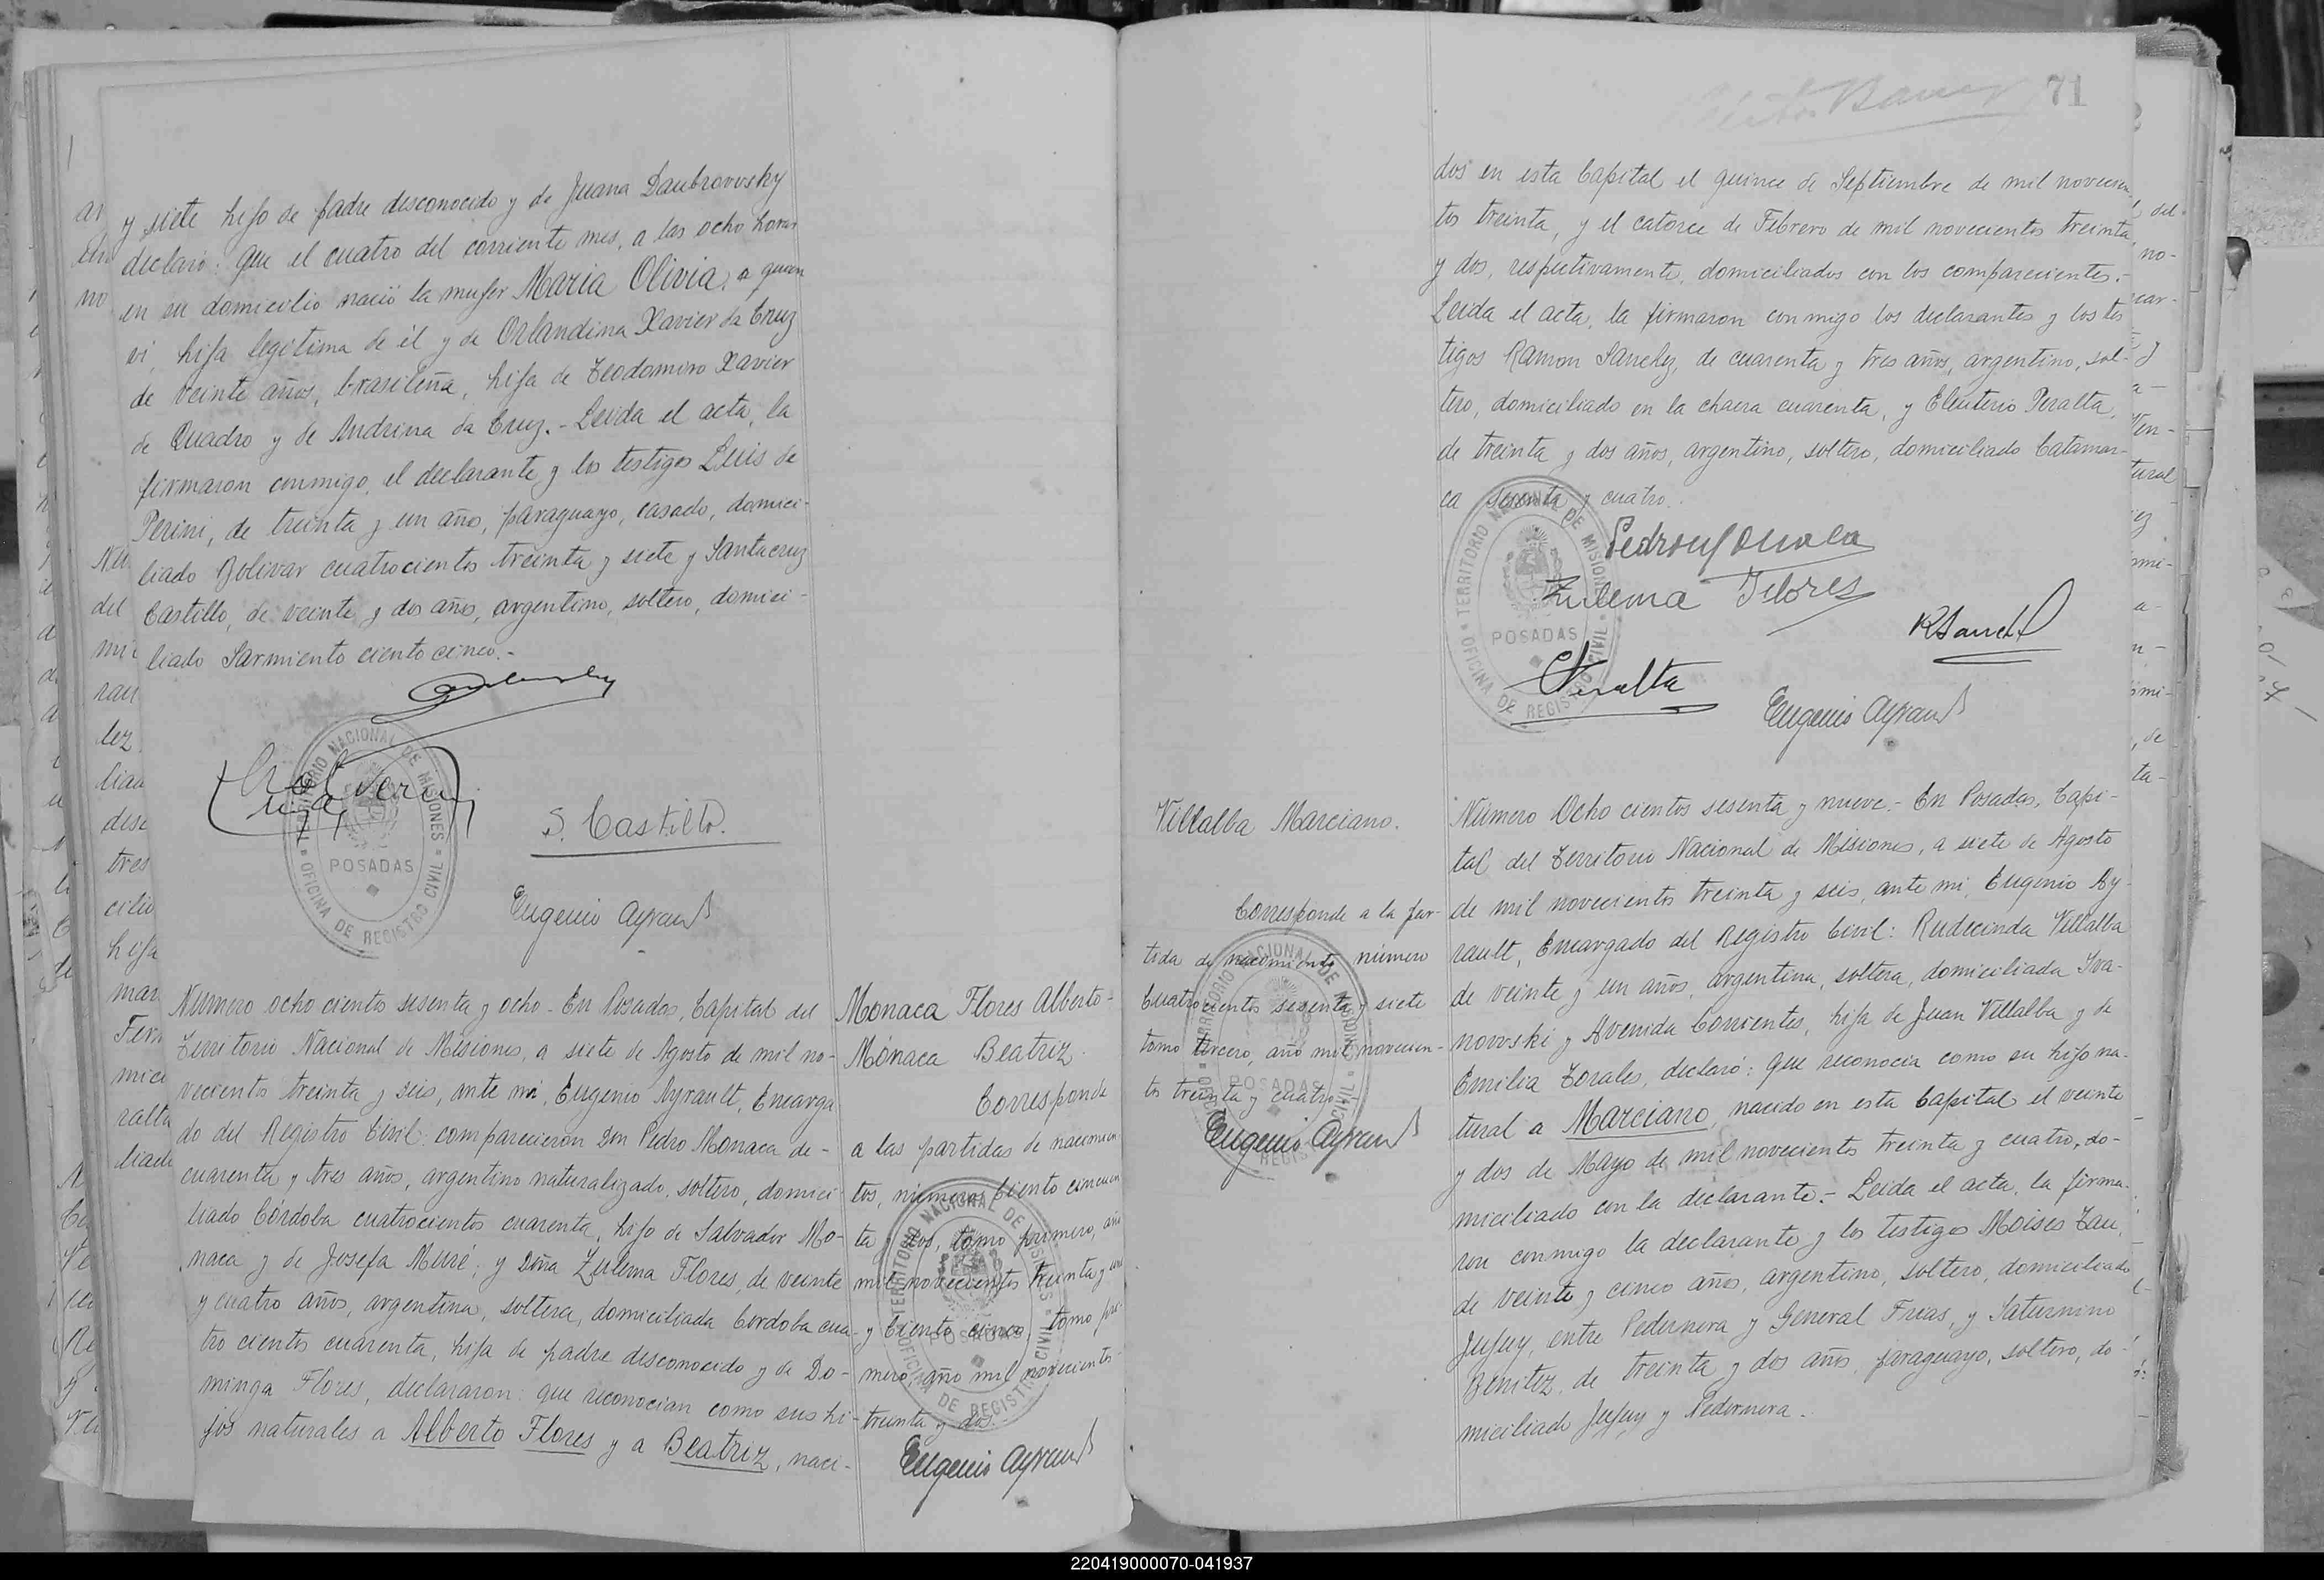 y siete hijo de padre desconocido y de Juana Daubrovosky
declaró: que el cuatro del corriente mes, a las ocho horas
en su domicilio nació la mujer Maria Olivia, a quien
vi, hija legitima de él y de Orlandina Xavier da Cruz
de veinte años, brasileña, hija de Teodomiro Xavier
de Quadro y de Andrina da Cruz.- Leida el acta, la
firmaron conmigo, el declarante y los testigos Luis de
Perini, de treinta y un año, paraguayo, casado, domici-
liado Bolivar cuatrocientos treinta y siete y Santacruz
Castillo, de veinte y dos años, argentino, soltero, domici-
liado Sarmiento ciento cinco.-
TERRITORIO NACIONAL DE MISIONES
POSADAS
OFICINA DE REGISTRO CIVIL
S. Castillo.
Eugenio Ayrault
Número ocho cientos sesenta y ocho - En Posadas, Capital del
Territorio Nacional de Misiones, a siete de Agosto de mil no-
vecientos treinta y seis, ante mi, Eugenio Ayrault, Encarga
do del Registro Civil: comparecieron Don Pedro Monaca de-
cuarenta y tres años, argentino naturalizado, soltero, domici-
liado Córdoba cuatrocientos cuarenta, hijo de Salvador Mo-
naca y de Josefa Muré; y Doña Zulema Flores, de veinte
y cuatro años, argentina, soltera, domiciliada Cordoba cua-
tro cientos cuarenta, hija de padre desconocido y de Do-
minga Flores, declararon: que reconocian como sus hi-
jos naturales a Alberto Flores y a Beatriz, naci-
Monaca Flores Alberto-
Mónaca Beatriz.
Corresponde
a las partidas de nacimien
tos, números Ciento cincuen
ta y dos, tomo primero, año
mil novecientos treinta y uno
y Ciento cinco, tomo pri-
mero, año mil novecientos
treinta y dos.
TERRITORIO NACIONAL DE MISIONES
POSADAS
OFICINA DE REGISTRO CIVIL
Eugenio Ayrault
71
dos en esta Capital el quince de Septiembre de mil novecien
tos treinta, y el catorce de Febrero de mil novecientos treinta
y dos, respectivamente, domiciliados con los comparecientes.-
Leida el acta, la firmaron conmigo los declarantes y los tes
tigos Ramon Sanchez, de cuarenta y tres años, argentino, sol-
tero, domiciliado en la chacra cuarenta, y Eleuterio Peralta,
de treinta y dos años, argentino, soltero, domiciliado Catamar-
ca sesenta y cuatro.
TERRITORIO NACIONAL DE MISIONES
POSADAS
OFICINA DE REGISTRO CIVIL
Pedro Monaca
Zulema Flores
RSanchez
Peralta
Eugenio Ayrault
Villalba Marciano.
Corresponde a la par-
tida de nacimiento número
Cuatrocientos sesenta y siete
tomo tercero, año mil novecien-
tos treinta y cuatro.-
TERRITORIO NACIONAL DE MISIONES
POSADAS
OFICINA DE REGISTRO CIVIL
Eugenio Ayrault
Número Ocho cientos sesenta y nueve.- En Posadas, Capi-
tal del Territorio Nacional de Misiones, a siete de Agosto
de mil novecientos treinta y seis, ante mi, Eugenio Ay-
rault, Encargado del Registro Civil: Rudecinda Villalba
de veinte y un años, argentina, soltera, domiciliada Iva-
novoski y Avenida Corrientes, hija de Juan Villalba y de
Emilia Torales, declaró: que reconocia como su hijo na-
tural a Marciano, nacido en esta Capital el veinte
y dos de Mayo de mil novecientos treinta y cuatro, do-
miciliado con la declarante.- Leida el acta, la firma-
ron conmigo la declarante y los testigos Moises Zau,
de veinte y cinco años, argentino, soltero, domiciliado
Jujuy, entre Pedernera y General Frias, y Saturnino
Benitez, de treinta y dos años, paraguayo, soltero, do-
miciliado Jujuy y Pedernera.
220419000070-041937